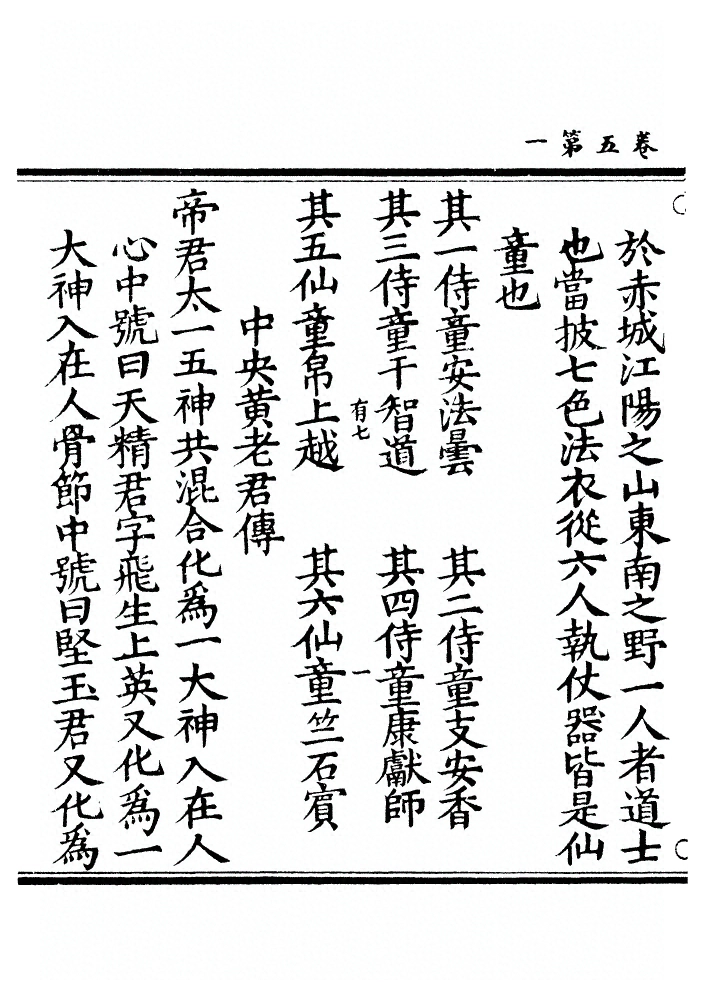 卷五第一
於赤城江陽之山東南之野一人者道士
也當披七色法衣從六人執仗器皆是仙
童也
其一侍童安法曇　其二侍童支安香
其三侍童干智道　其四侍童康獻師
有七　一
其五仙童帛上越　其六仙童竺石賓
中央黄老君傳
帝君太一五神共混合化爲一大神入在人
心中號曰天精君字飛生上英又化爲一
大神入在人骨節中號曰堅玉君又化爲